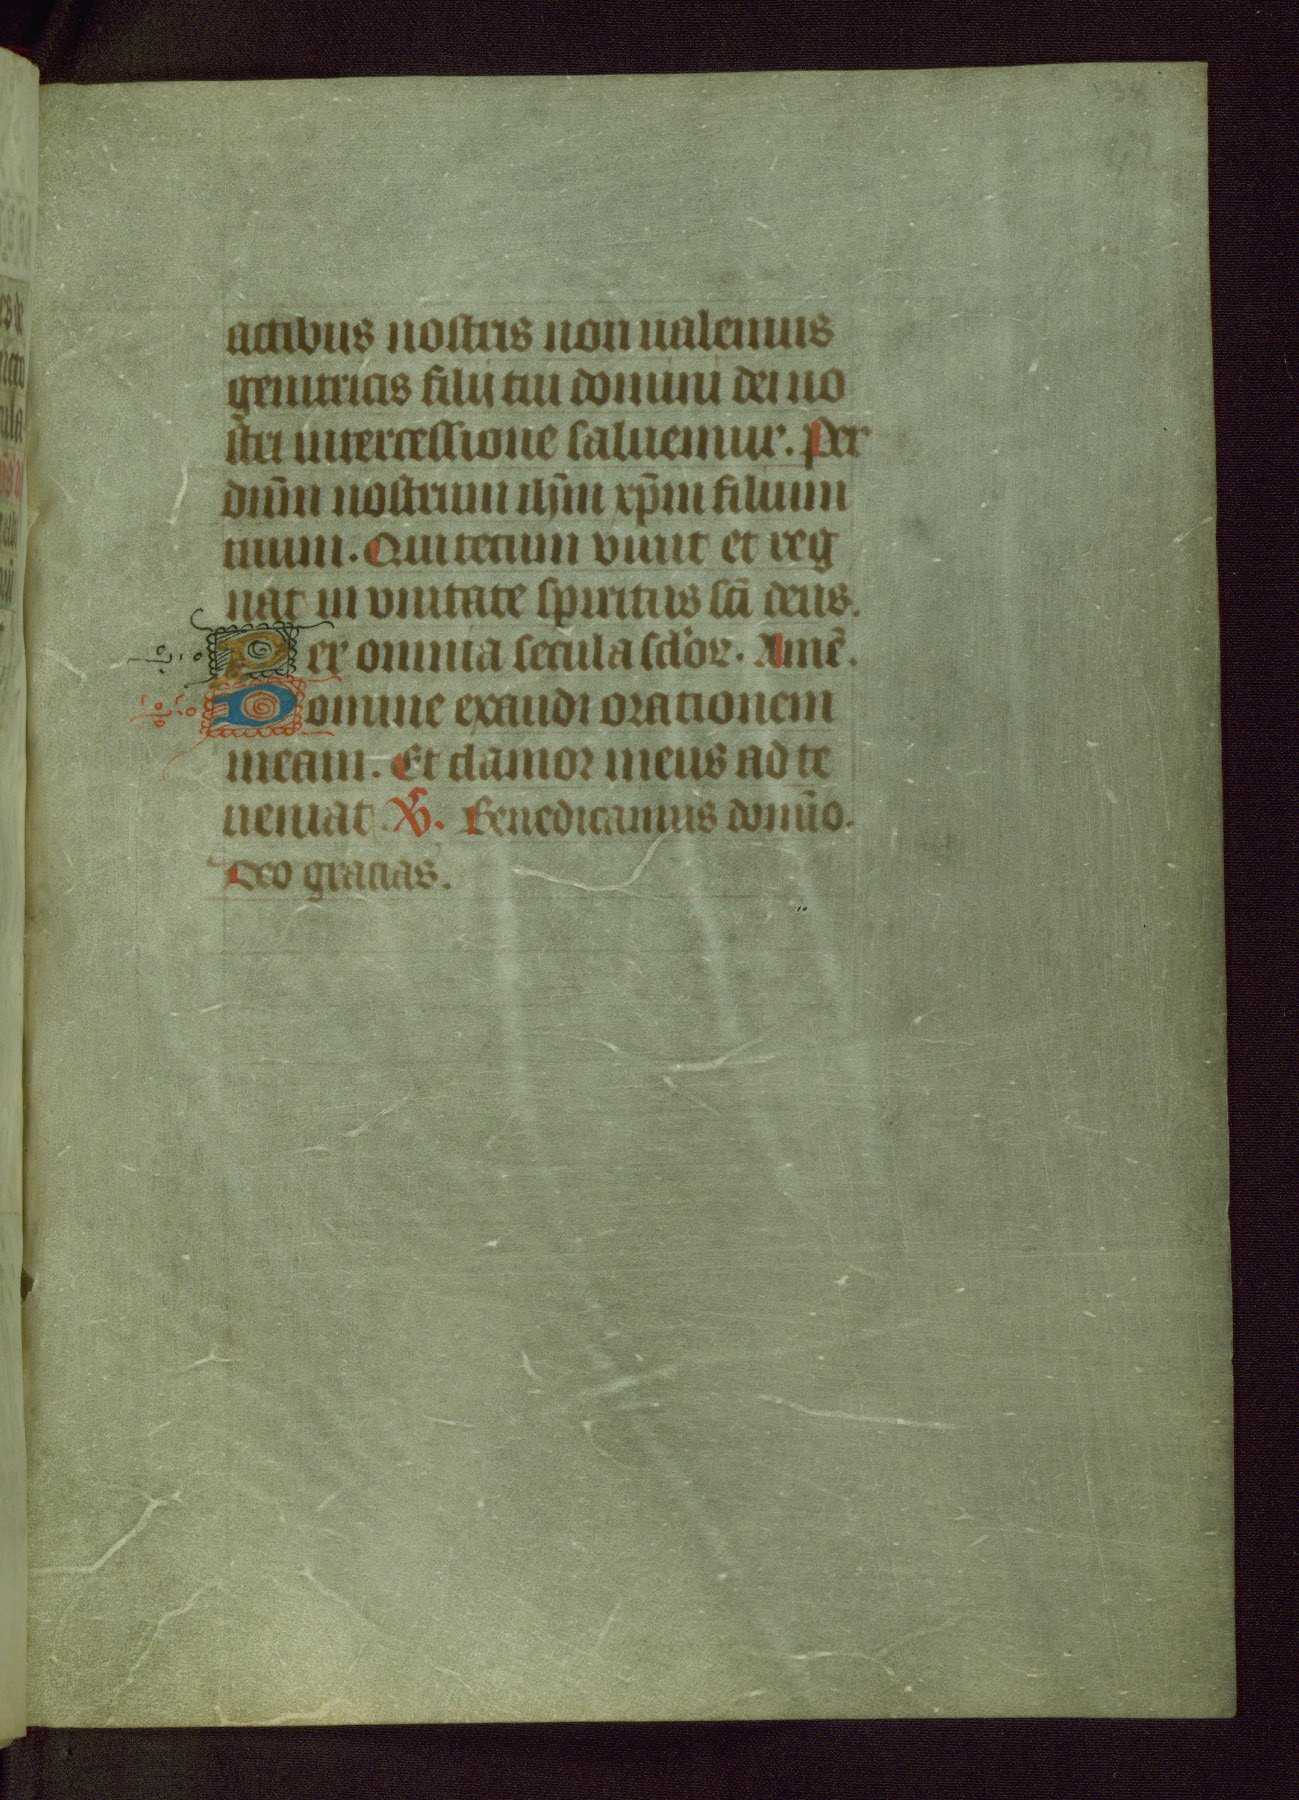 138
actibus nostris non ualemus
genitricis filij tui domini dei no
stri intercessione saluemur. Per
dn̄m nostrum ihm̄ xp̄m filium
tuum. Qui tecum viuit et reg
nat in vnitate spiritus sc̄i deus.
Per omnia secula sc̄lor. Amē.
Domine exaudi orationem
meam. Et clamor meus ad te
ueniat. V. Benedicamus domīo.
Deo gracias.